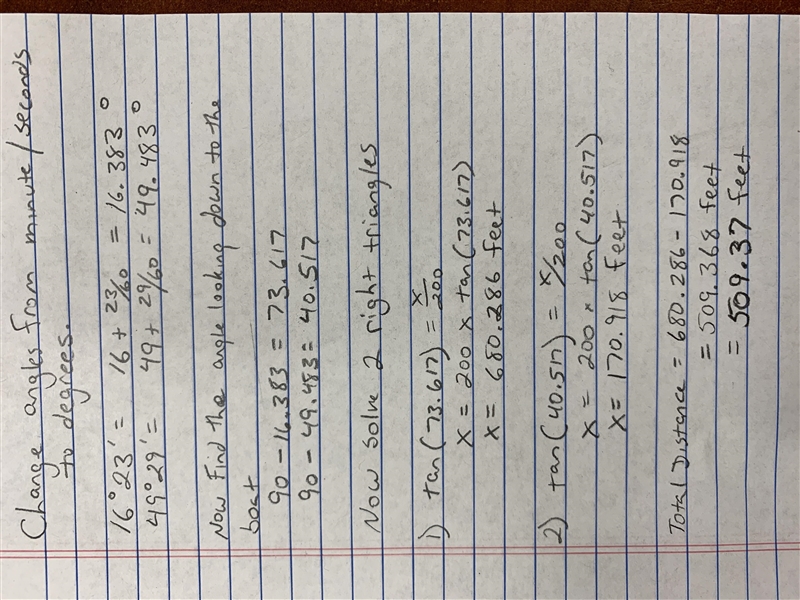 Change angles from minute/seconds
to degrees.
16°23' = 16 + 23/60 = 16.383°
49°29' = 49 + 29/60 = 49.483°
Now find the angle looking down to the
boat
90 - 16.383 = 73.617
90 - 49.483 = 40.517
Now solve 2 right triangles
1) tan(73.617) = x/200
x = 200 × tan(73.617)
x = 680.286 feet
2) tan(40.517) = x/200
x = 200 × tan(40.517)
x = 170.918 feet
Total Distance = 680.286 - 170.918
= 509.368 feet
= 509.37 feet